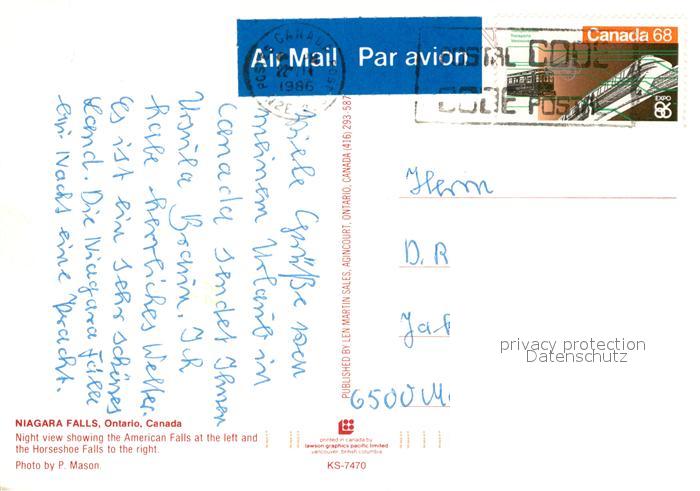 Air Mail Par avion
CANADA
1986
POSTAL CODE
CODE POSTAL
Canada 68
EXPO 86
Viele Grüße von
meinem Urlaub in
Canada sendet Ihnen
Ursula Ich
habe herrliches Wetter.
Es ist ein sehr schönes
Land. Die Niagara Fälle
bei Nacht eine Pracht.
PUBLISHED BY LEN MARTIN SALES, AGINCOURT, ONTARIO, CANADA (416) 293-587
Herrn
D. R
Jak
6500 M
privacy protection
Datenschutz
NIAGARA FALLS, Ontario, Canada
Night view showing the American Falls at the left and
the Horseshoe Falls to the right.
Photo by P. Mason.
printed in canada by
lawson graphics pacific limited
vancouver, british columbia
KS-7470